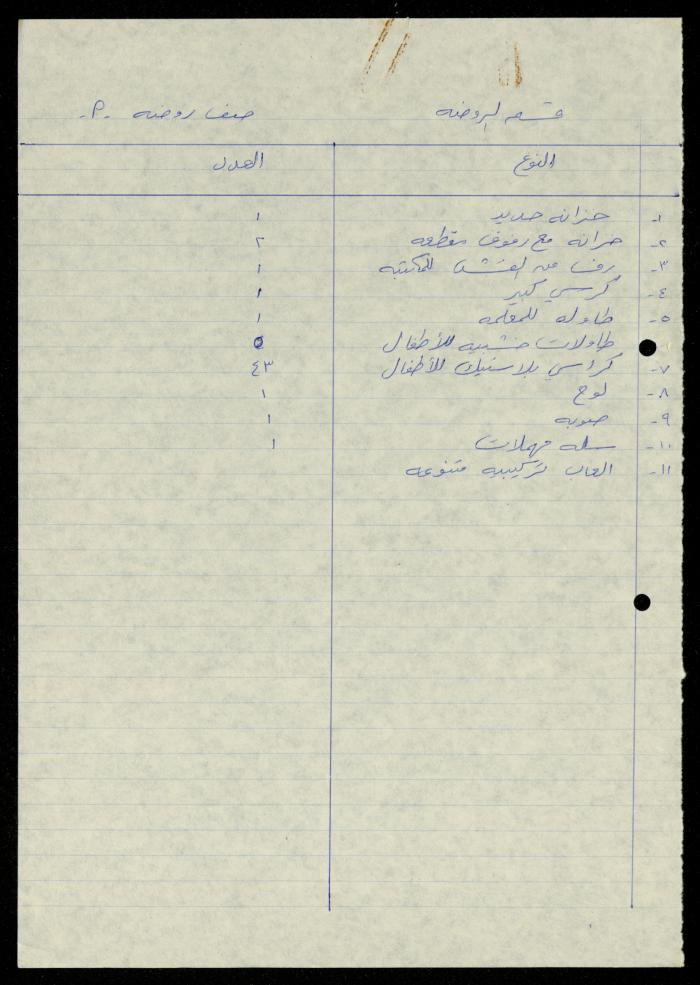 قسم الروضه صف روضه م.
النوع العدد
١- خزانه حديد ١
٢- خزانه مع رفوف مقطعه ٢
٣- رف من القش للمكتبه ١
٤- كرسي كبير ١
٥- طاوله للمعلمه ١
طاولات خشبيه للأطفال ٥
٧- كراسي بلاستيك للأطفال ٤٣
٨- لوح ١
٩- صوبه ١
١٠- سله مهملات ١
١١- العاب تركيبيه متنوعه